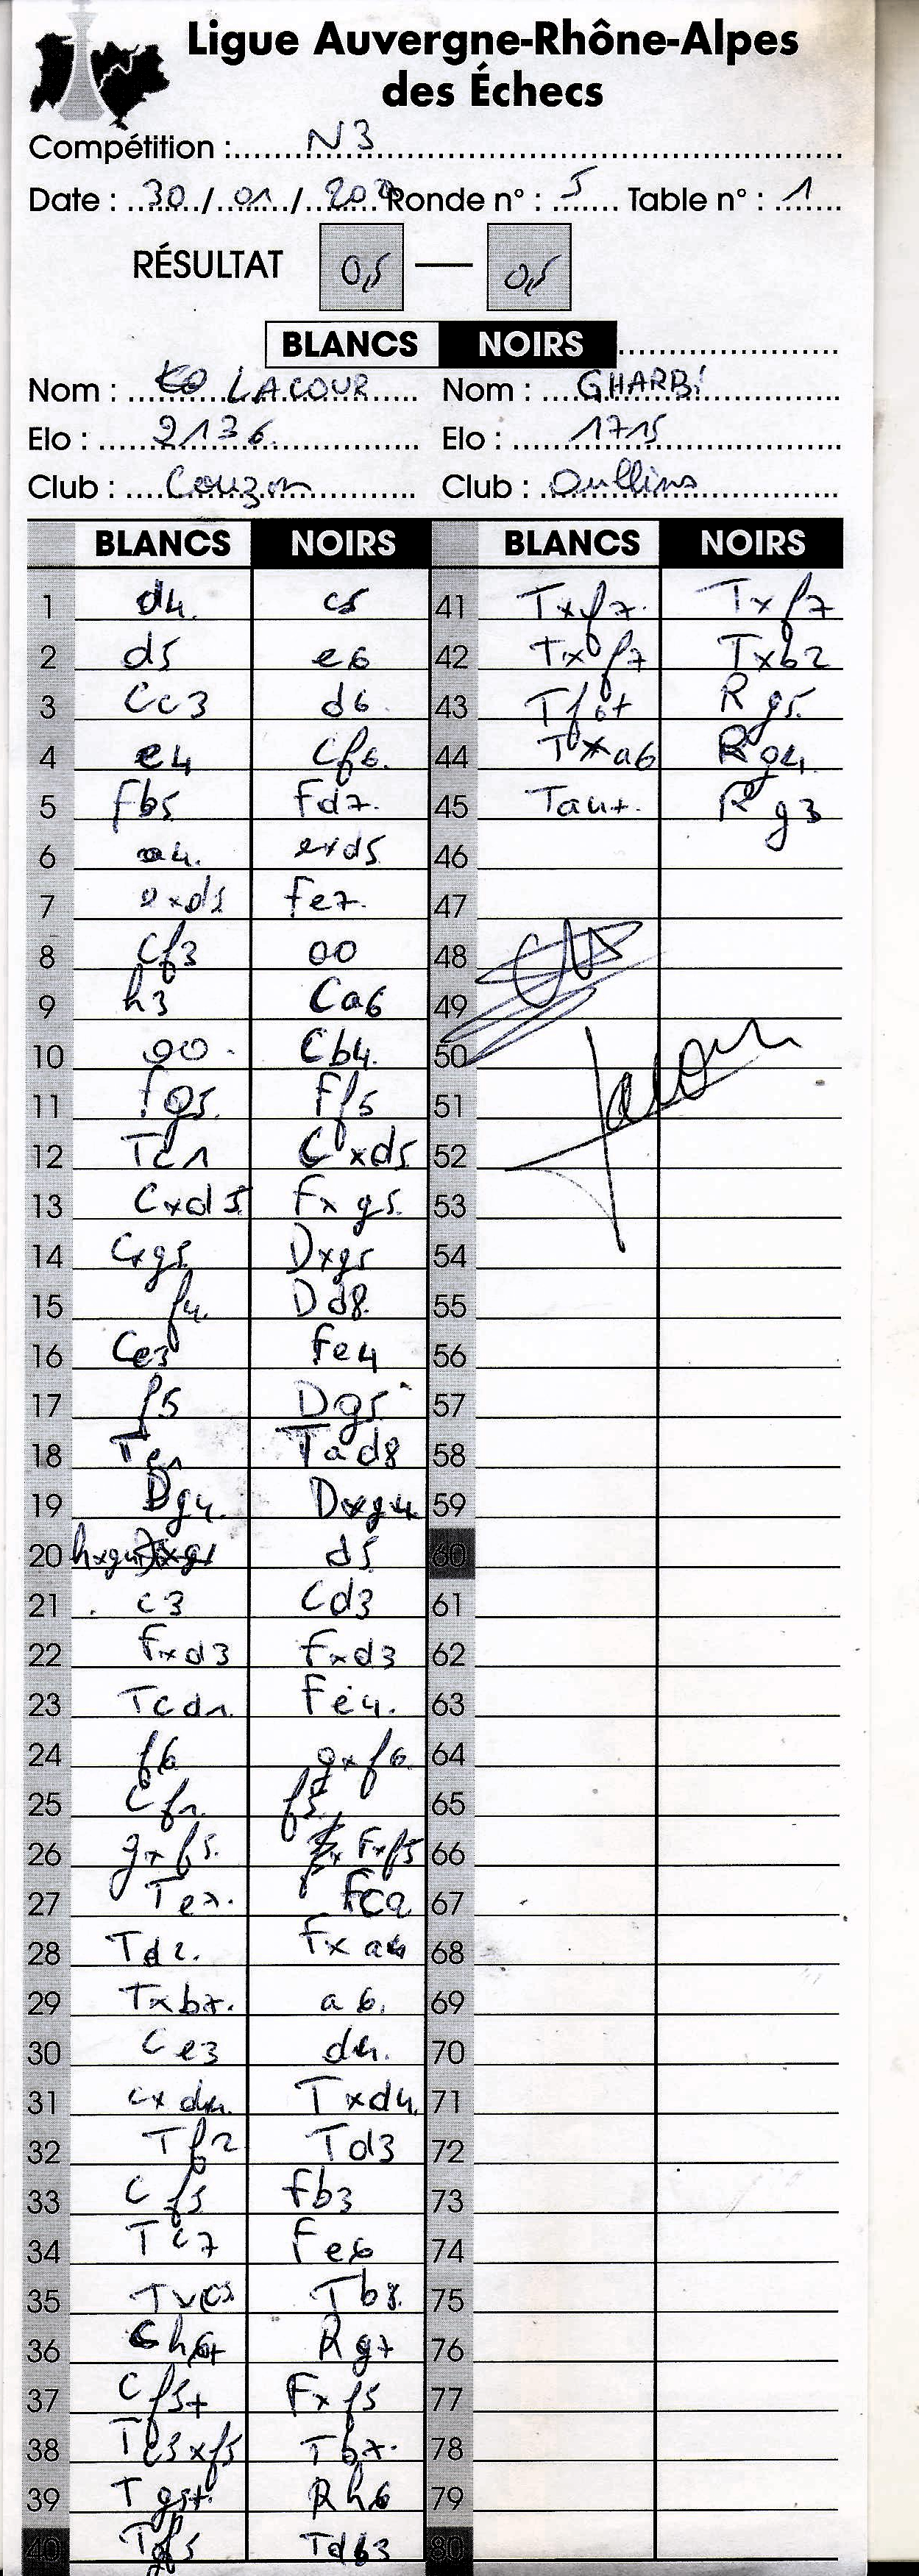 Ligue Auvergne-Rhône-Alpes
des Échecs
Compétition : N3
Date : 30/01/202 Ronde n° : 5 Table n° : 1
RÉSULTAT 0,5 — 0,5
BLANCS NOIRS
Nom : LACOUR Nom : GHARBI
Elo : 2136 Elo : 1715
Club : Couzon Club : Oullins
BLANCS NOIRS BLANCS NOIRS
1 d4. c5 41 Txf7. Txf7
2 d5 e6 42 Txf7 Txb2
3 Cc3 d6 43 Tf6+ Rg5.
4 e4 Cf6. 44 Txa6 Rg4.
5 Fb5 Fd7. 45 Ta4+. Rg3
6 a4. exd5 46
7 exd5 Fe7. 47
8 Cf3 00 48
9 h3 Ca6 49
10 00. Cb4. 50
11 Fg5. Ff5 51
12 Tc1 Cxd5 52
13 Cxd5 Fxg5. 53
14 Cxg5 Dxg5 54
15 f4. Dd8. 55
16 Ce3 Fe4 56
17 f5 Dg5 57
18 Te1 Tad8 58
19 Dg4. Dxg4. 59
20 hxg4 d5 60
21 c3 Cd3 61
22 Fxd3 Fxd3 62
23 Tcd1. Fe4. 63
24 f6 gxf6. 64
25 Cf1. f5 65
26 gxf5. Fxf5 66
27 Te7. Fc2 67
28 Td2. Fxa4 68
29 Txb7. a6. 69
30 Ce3 d4. 70
31 cxd4. Txd4. 71
32 Tf2 Td3 72
33 Cf5 Fb3 73
34 Tc7 Fe6 74
35 Txc5 Tb8. 75
36 Ch6+ Rg7 76
37 Cf5+ Fxf5 77
38 Tc5xf5 Tb7. 78
39 Tg5+. Rh6 79
40 Tgf5 Tdb3 80